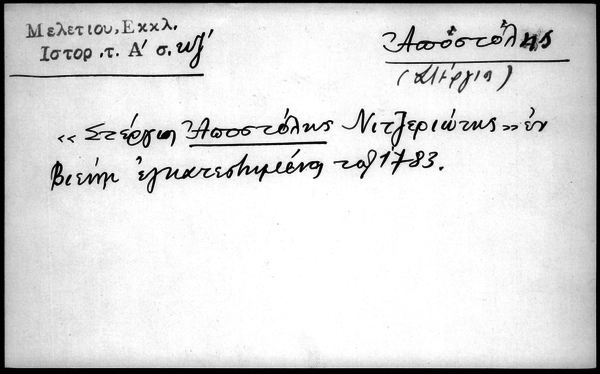 Μελετίου, Εκκλ.
Ιστορ. τ. Α' σ. κζ'
Ἀποστόλης
(Στέργιος)
« Στέργιος Ἀποστόλης Νιτζεριώτης » ἐν
Βιέννῃ ἐγκατεστημένος τῷ 1783.